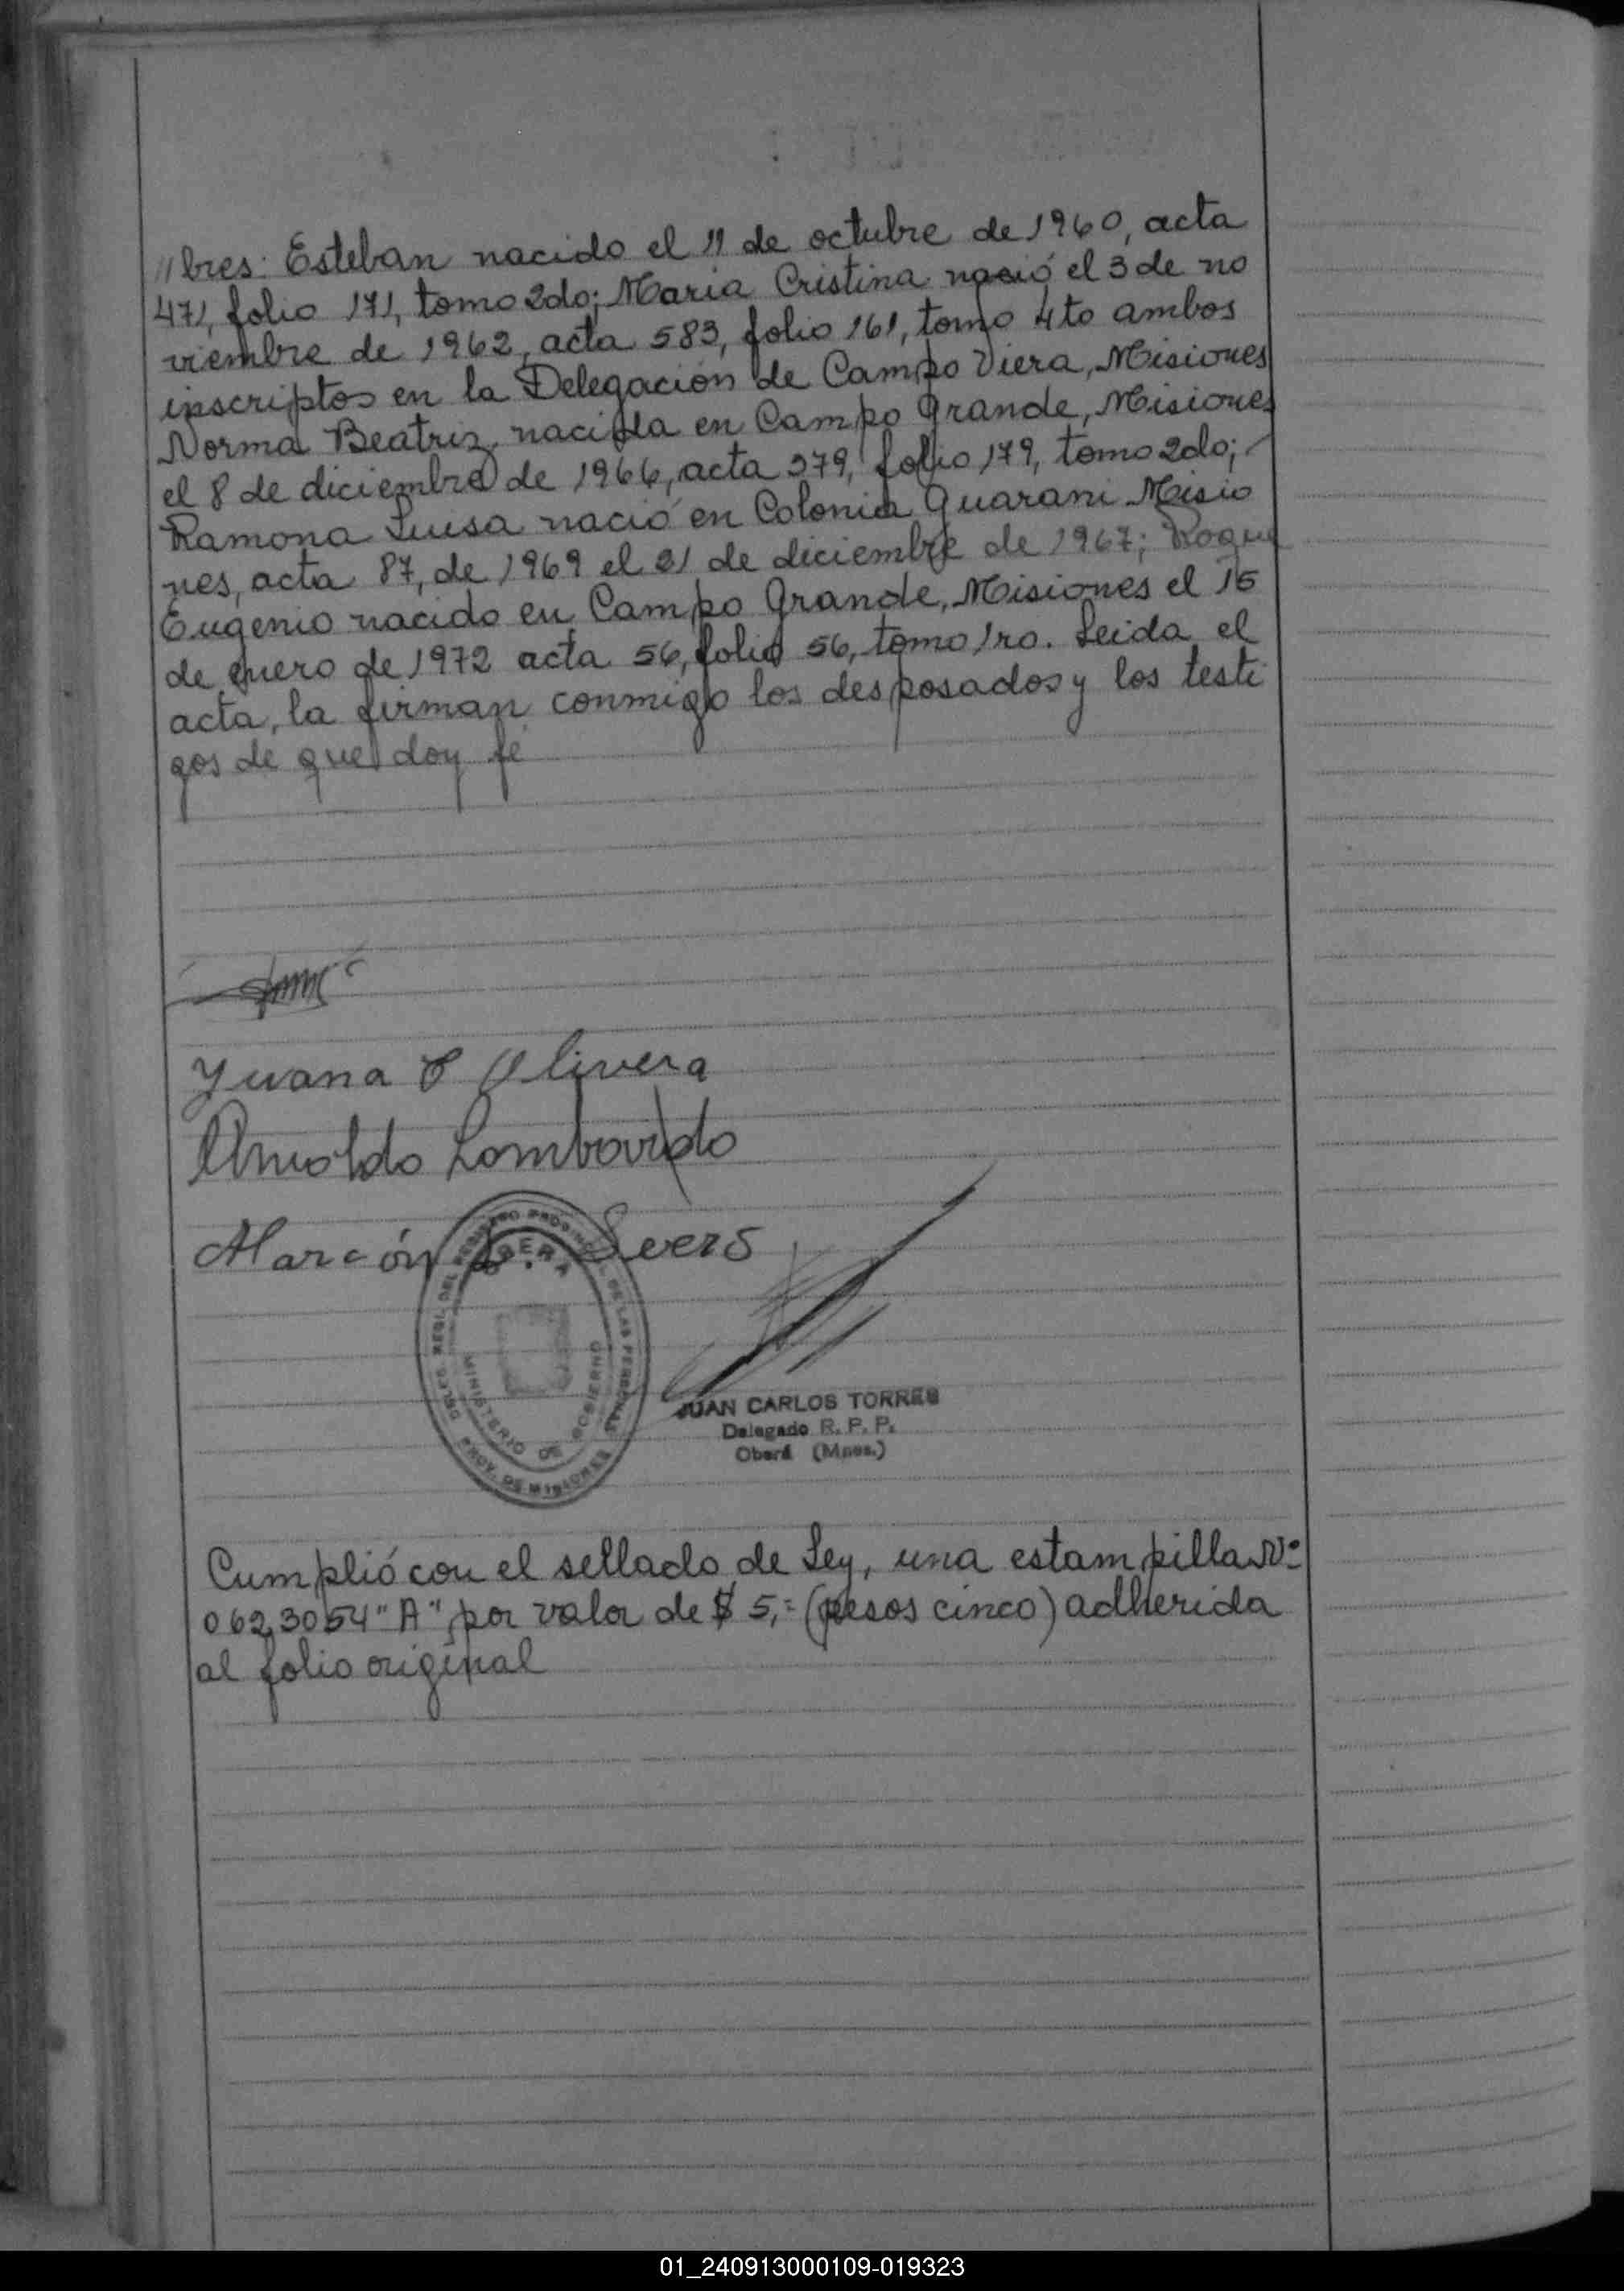 //bres: Esteban nacido el 11 de octubre de 1960, acta
471, folio 171, tomo 2do; Maria Cristina nació el 3 de no
viembre de 1962, acta 583, folio 161, tomo 4to ambos
inscriptos en la Delegación de Campo Viera, Misiones
Norma Beatriz, nacida en Campo Grande, Misiones
el 8 de diciembre de 1966, acta 379, folio 179, tomo 2do;
Ramona Luisa nació en Colonia Guarani Misio
nes, acta 87, de 1969 el 21 de diciembre de 1967; Roque
Eugenio nacido en Campo Grande, Misiones el 15
de enero de 1972 acta 56, folio 56, tomo 1ro. Leida el
acta, la firman conmigo los desposados y los testi
gos de que doy fé
Juana E Olivera
Arnoldo Lombardo
Alarcón Severo
DELEG. REGI. DEL REGISTRO PROVINCIAL DE LAS PERSONAS
OBERA
MINISTERIO DE GOBIERNO
PROV. DE MISIONES
JUAN CARLOS TORRES
Delegado R. P. P.
Oberá (Mnes.)
Cumplió con el sellado de Ley, una estampilla Nº
0623054 "A", por valor de $ 5,= (pesos cinco) adherida
al folio original
01_240913000109-019323